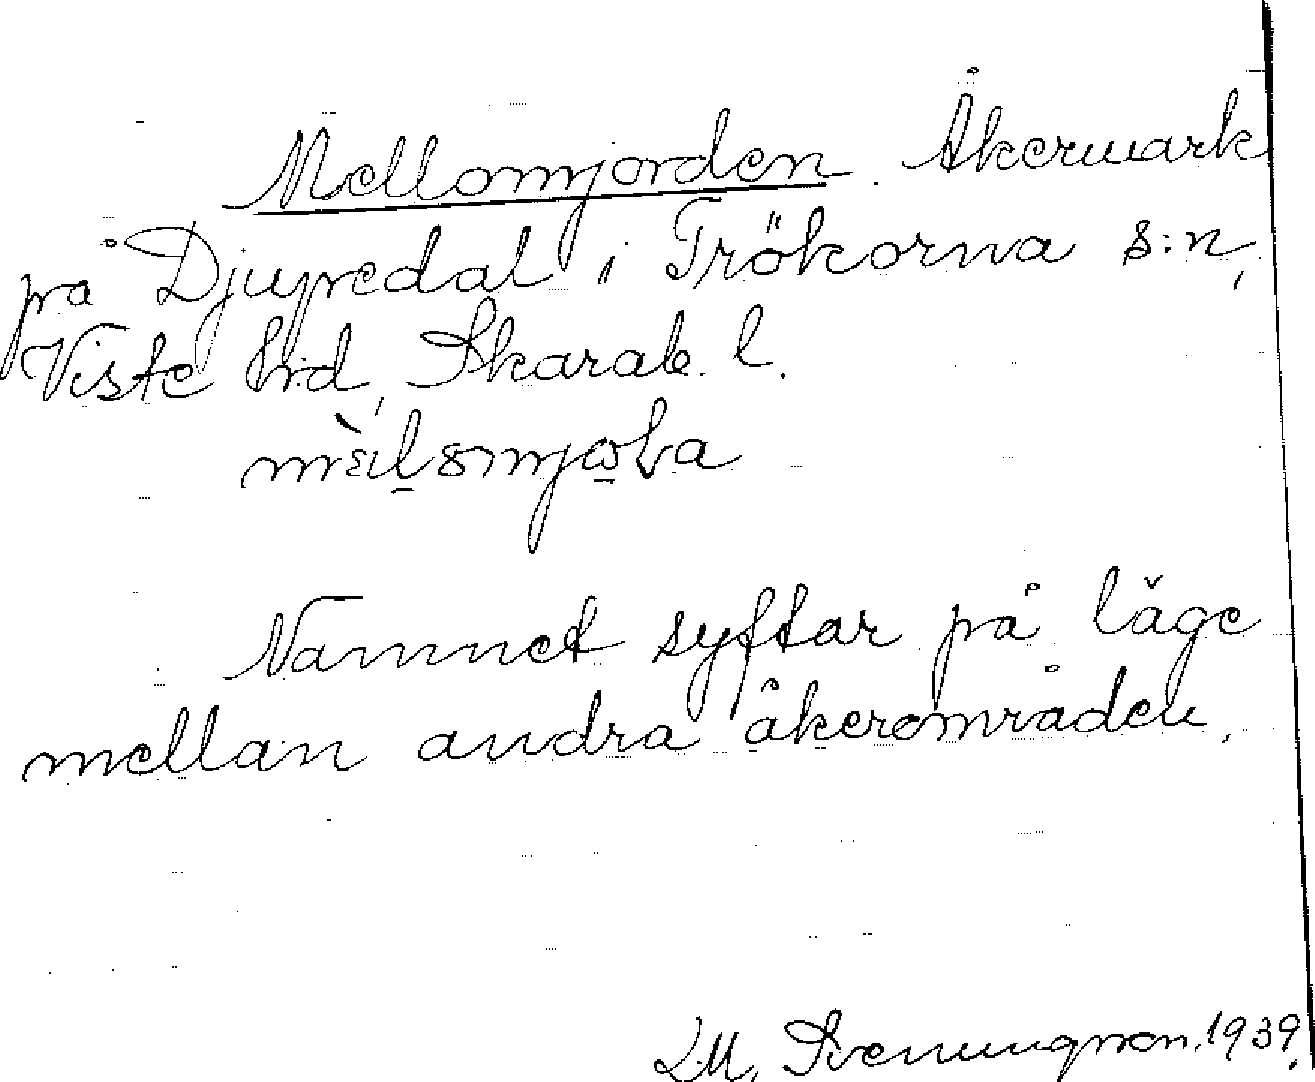 Mellomjorden. Åkermark
på Djupedal i Trökorna s:n,
Viste hrd, Skarab. l.
Namnet syftar på läge
mellan andra åkerområden.
1939.